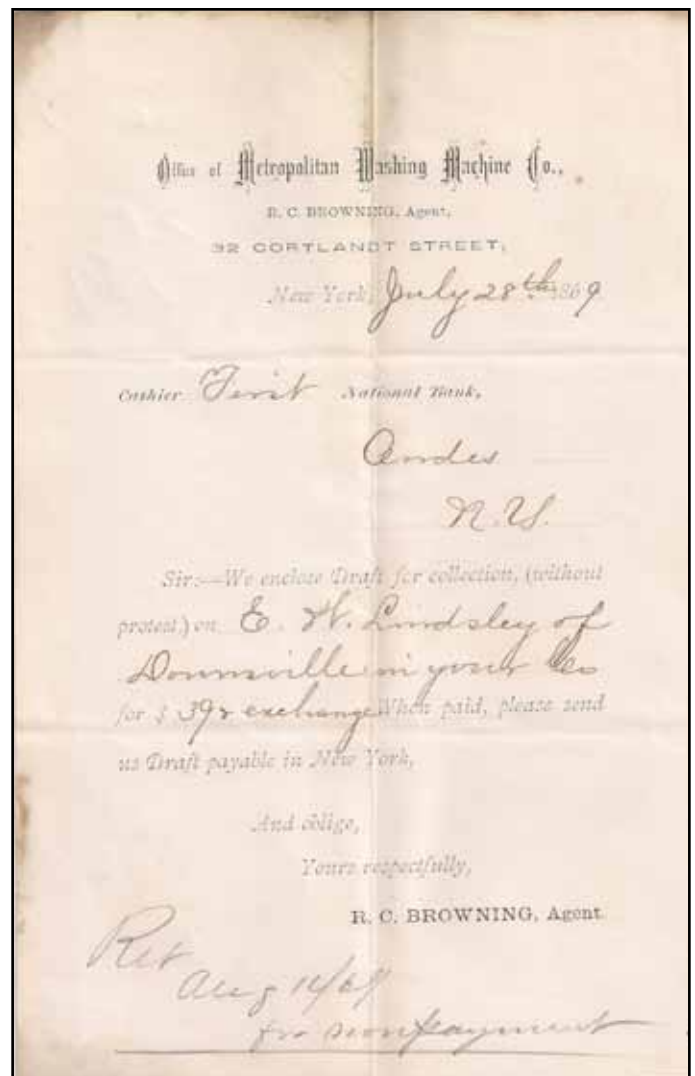 Office of Metropolitan Washing Machine Co.,
R. C. BROWNING, Agent,
32 CORTLANDT STREET,
New York, July 28th 1869
Cashier First National Bank,
Andes
N.Y.
Sir:—We enclose Draft for collection, (without
protest) on E. W. Lindsley of
Downsville in your Co
for $ 39 & exchange When paid, please send
us Draft payable in New York,
And oblige,
Yours respectfully,
R. C. BROWNING, Agent.
Ret
Aug 14/69
for nonpayment